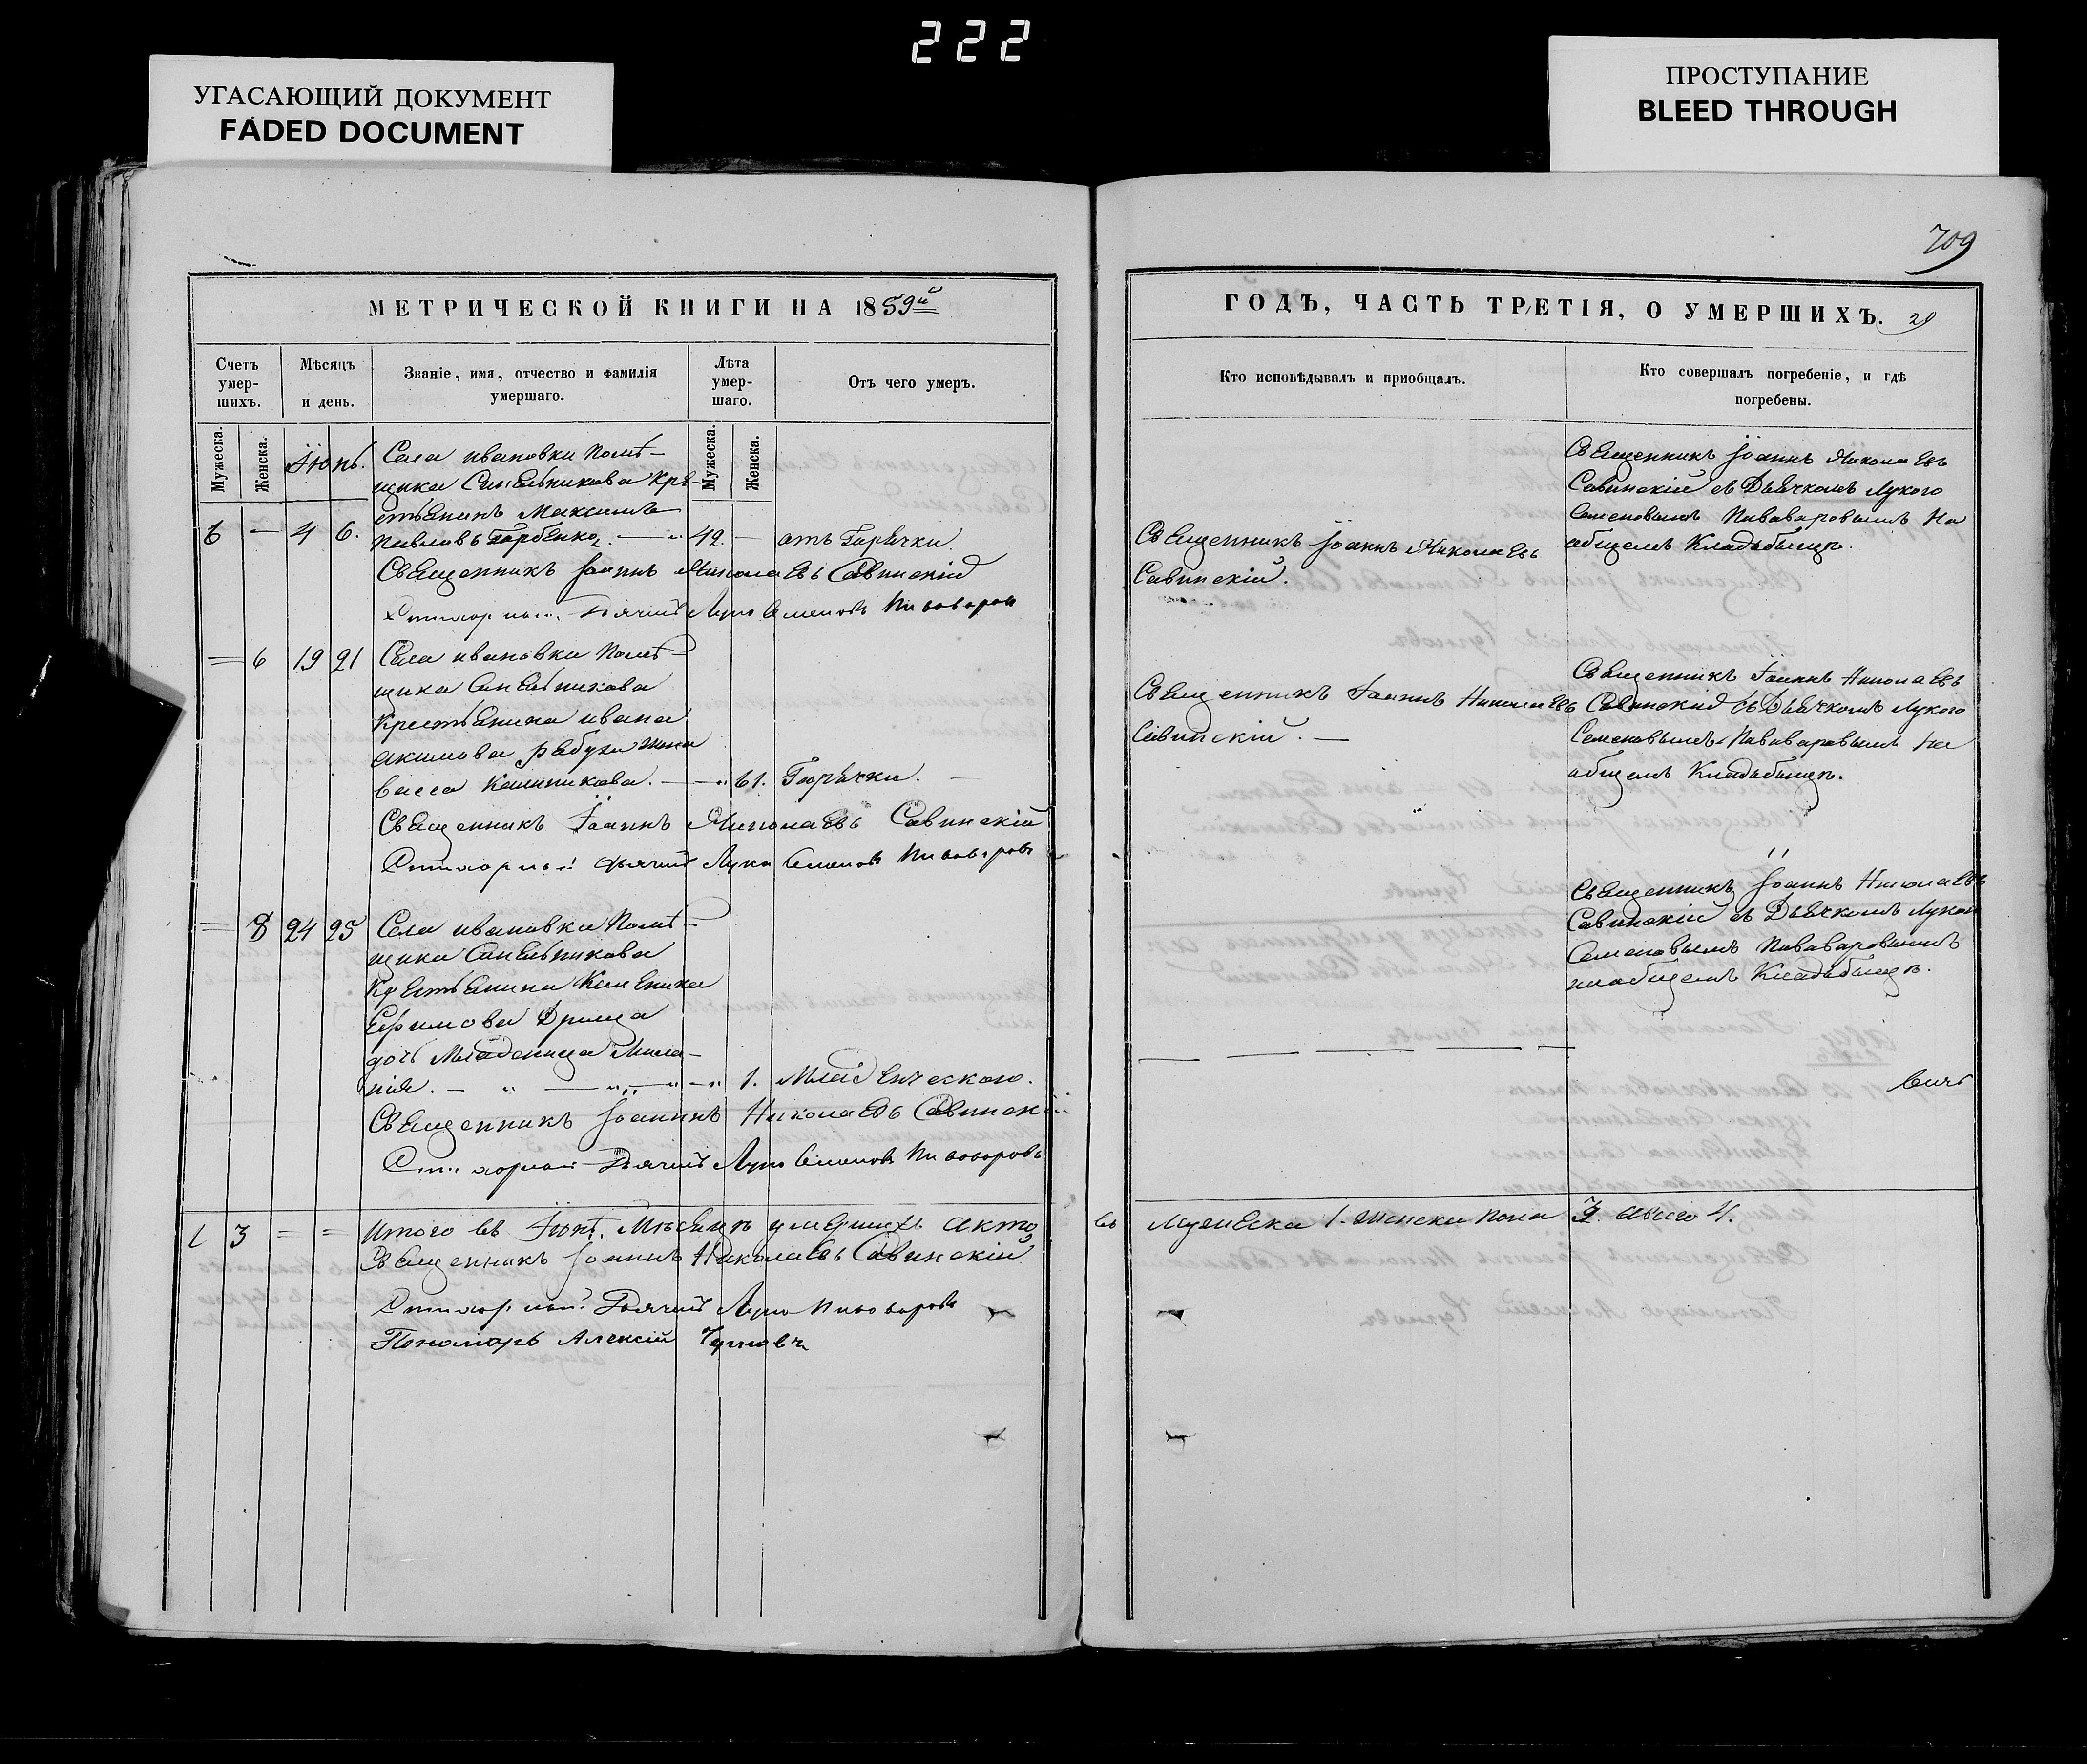 222
УГАСАЮЩИЙ ДОКУМЕНТ
FADED DOCUMENT
ПРОСТУПАНИЕ
BLEED THROUGH
709
МЕТРИЧЕСКОЙ КНИГИ НА 1859й
Счетъ умер-шихъ.
Мѣсяцъ и день.
Званіе, имя, отчество и фамилія умершаго.
Лѣта умер-шаго.
Отъ чего умеръ.
Мужеска.
Женска.
Мужеска.
Женска.
Іюнь.
Села ивановки Помѣ-
щика Синельникова Кре-
стьянинъ Максимъ
6 — 4 6. Павловъ Горбенко. — 42. — отъ Горячки.
Священникъ Іоаннъ Николаевъ Савинскій
Дьячекъ Лука Семеновъ Пивоваровъ
= 6 19 21 Села ивановки Помѣ-
щика Синельникова
Крестьянина ивана
акимова жена
васса — 61. Горячки. —
Священникъ Іоаннъ Николаевъ Савинскій
Дьячекъ Лука Семеновъ Пивоваровъ
= 8 24 25 Села ивановки Помѣ-
щика Синельникова
Крестьянина
Ефимова
дочь Младеница Мила-
нія. — 1. Младенческаго.
Священникъ Іоаннъ Николаевъ Савинскій
Дьячекъ Лука Семеновъ Пивоваровъ
1 3 = = Итого въ Іюнѣ Мѣсяцѣ умершихъ
Священникъ Іоаннъ Николаевъ Савинскій
Дьячекъ Лука Пивоваровъ
Пономарь Алексій
ГОДЪ, ЧАСТЬ ТРЕТІЯ, О УМЕРШИХЪ. 29
Кто исповѣдывалъ и приобщалъ.
Кто совершалъ погребеніе, и гдѣ погребены.
Священникъ Іоаннъ Николаевъ
Савинскій.
Священникъ Іоаннъ Николаевъ
Савинскій съ Дьячкомъ Лукою
Семеновымъ Пивоваровымъ На
общемъ Кладбищѣ.
Священникъ Іоаннъ Николаевъ
Савинскій. —
Священникъ Іоаннъ Николаевъ
Савинскій съ Дьячкомъ Лукою
Семеновымъ Пивоваровымъ На
общемъ Кладбищѣ.
Священникъ Іоаннъ Николаевъ
Савинскій съ Дьячкомъ Лукою
Семеновымъ Пивоваровымъ
на общемъ Кладбищѣ.
Мужеска 1. Женска Пола 3. Всего 4.